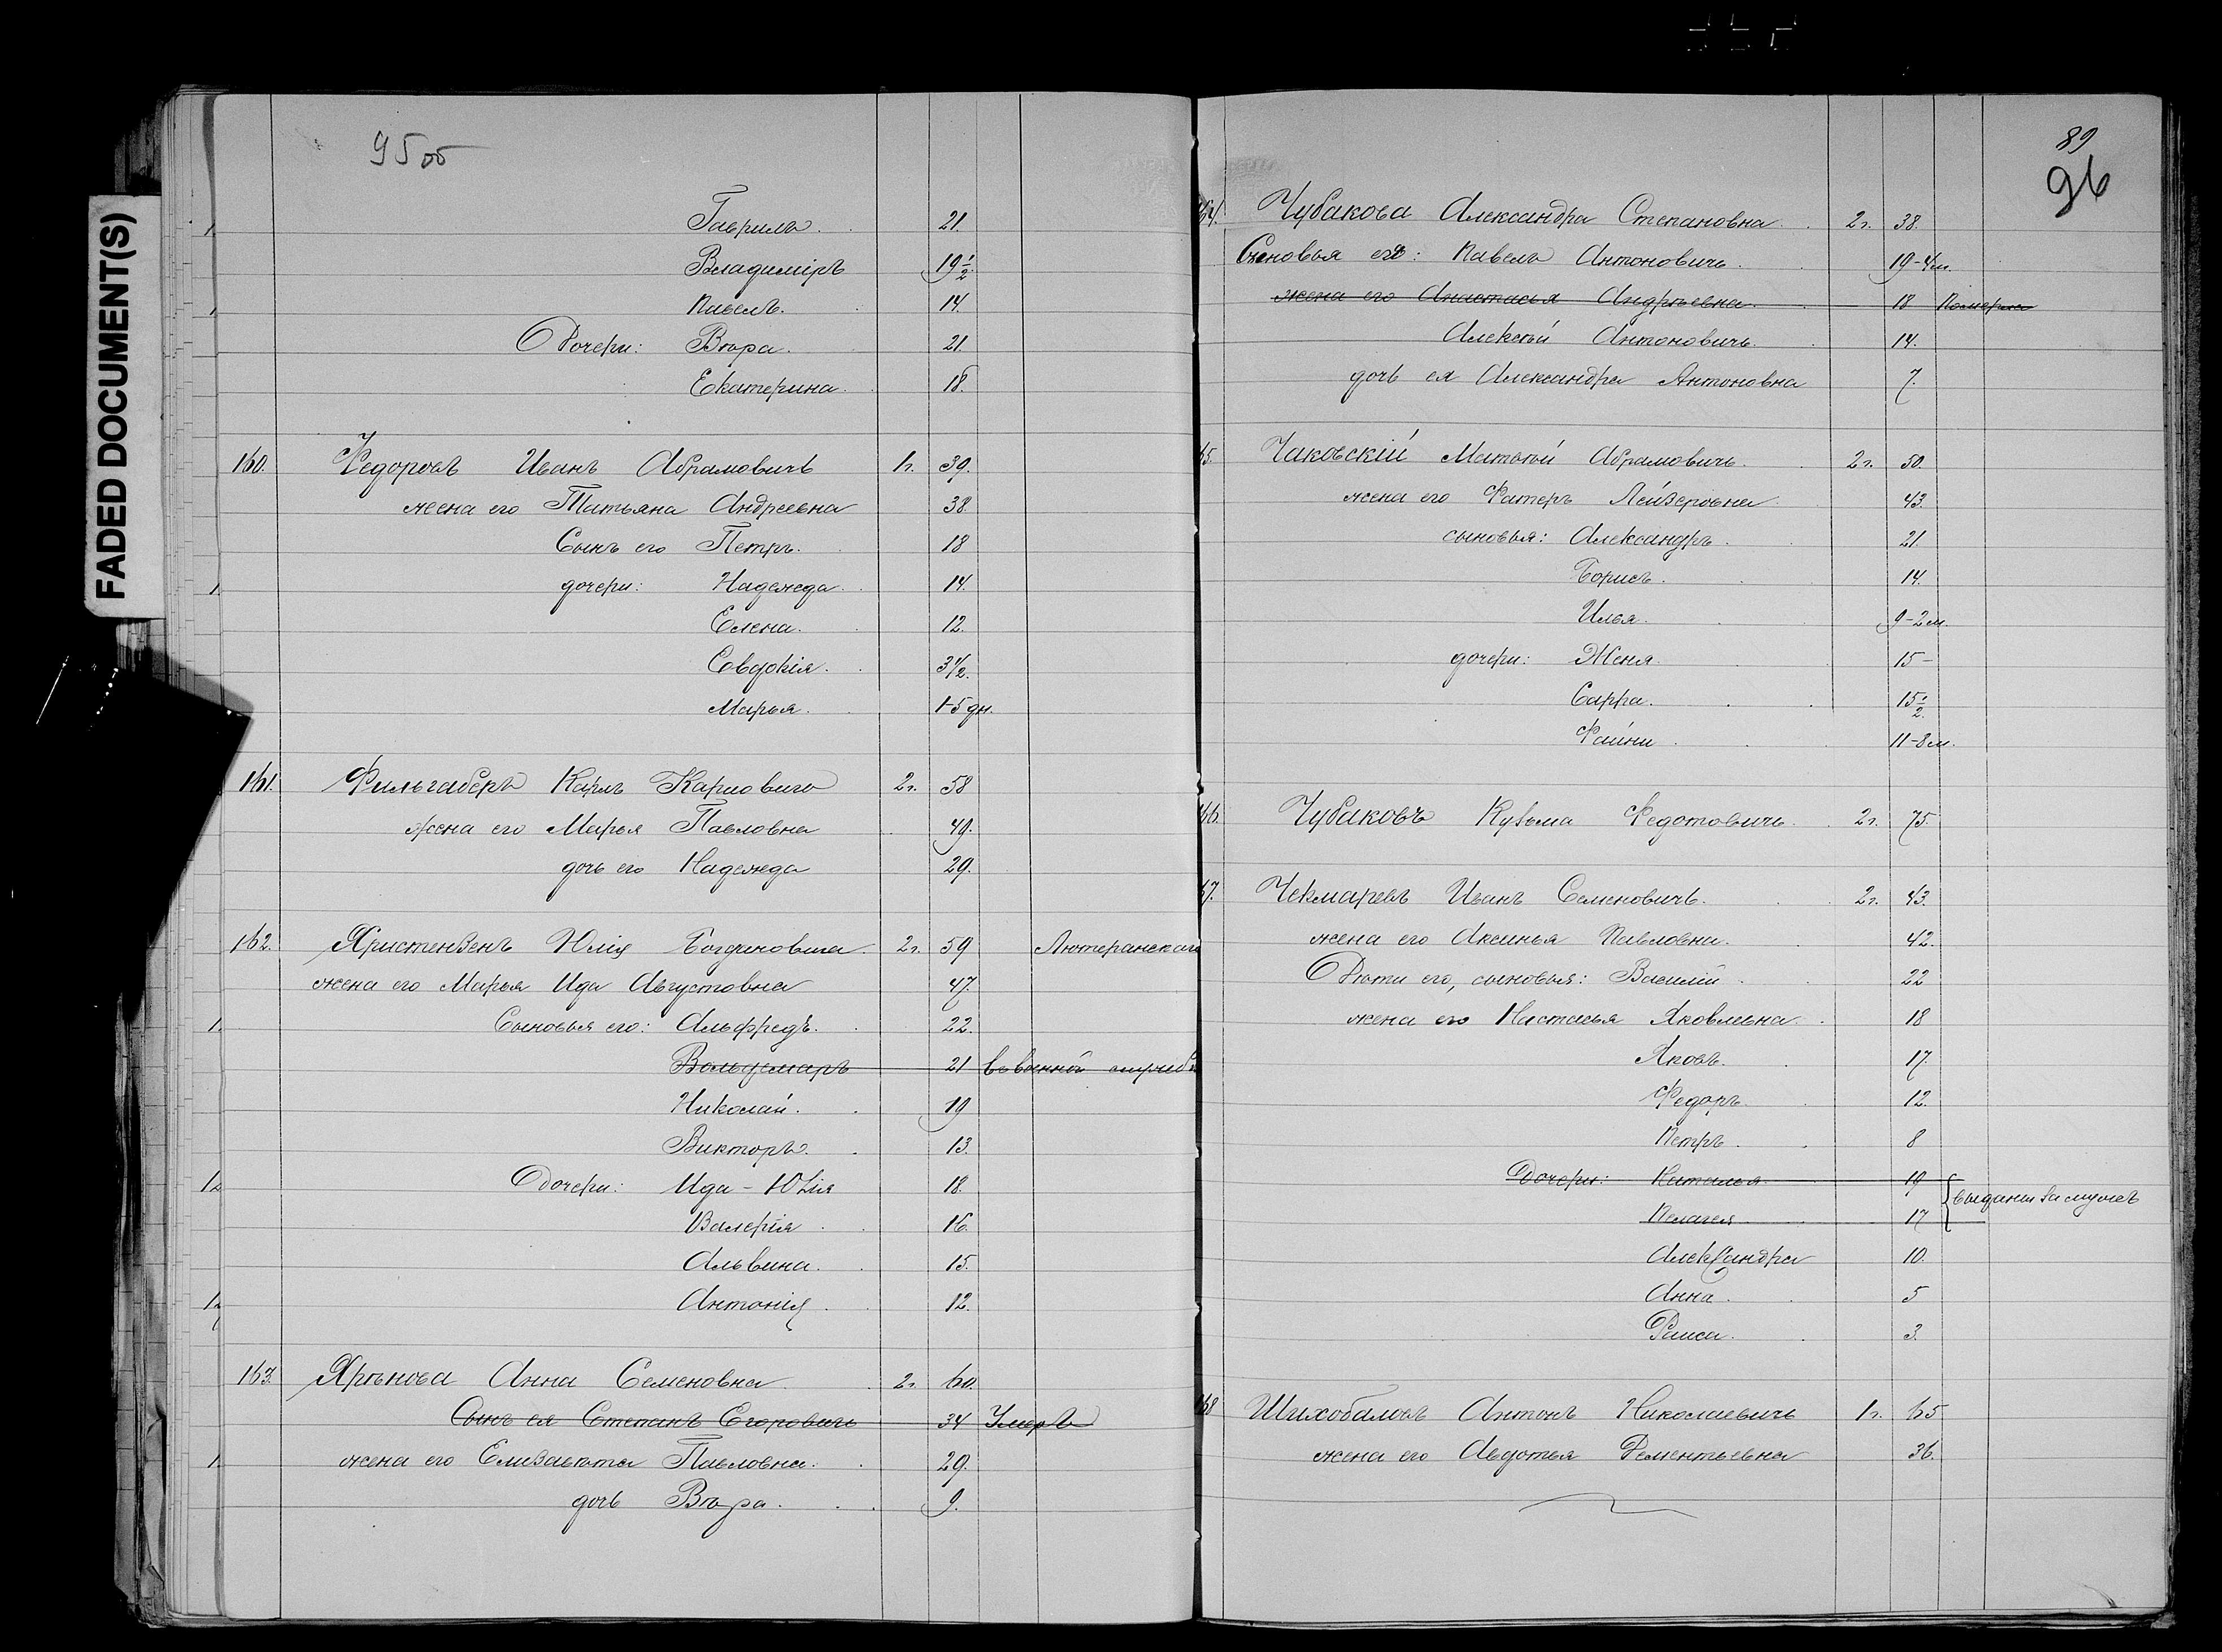 FADED DOCUMENT(S)
95 об
Гаврилъ. 21.
Владиміръ 19 1/2
Павелъ. 14.
Дочери: Вѣра. 21.
Екатерина. 18.
160. Федоровъ Иванъ Абрамовичъ 1г. 39.
жена его Татьяна Андреевна 38.
Сынъ его Петръ. 18
дочери: Надежда. 14.
Елена. 12.
Евдокія. 3 1/2.
Марья. 1-5 дн.
161. Фильгаберъ Карлъ Карловичъ 2г. 58
жена его Марья Павловна 49.
дочь его Надежда 29.
162. Христензенъ Юлій Богдановичъ 2г. 59 Лютеранскаго
жена его Марья Ида Августовна 47.
Сыновья его: Альфредъ. 22.
Вольдемаръ 21 въ военной службѣ
Николай. 19
Викторъ. 13.
Дочери: Ида-Юлія 18.
Валерія 16.
Альвина. 15.
Антонія 12.
163. Хрѣнова Анна Семеновна 2г. 60.
Сынъ ея Степанъ Егоровичъ 34 Умеръ
жена его Елизавета Павловна. 29.
дочь Вѣра. 9.
89
96
164. Чубакова Александра Степановна. 2г. 38.
Сыновья ея: Павелъ Антоновичъ. 19-4м.
жена его Анастасья Андрѣевна. 18 Померла
Алексѣй Антоновичъ. 14.
дочь ея Александра Антоновна 7.
65. Чаковскій Матвѣй Абрамовичъ. 2г. 50.
жена его Фатеръ Лейзеровна 43.
сыновья: Александръ. 21.
Борисъ. 14.
Илья. 9-2м.
дочери: Женя. 15-
Сарра. 15 1/2.
Файни 11-8м.
166. Чубаковъ Кузьма Федотовичъ. 2г. 75.
67. Чекмаревъ Иванъ Семеновичъ. 2г. 43.
жена его Аксинья Павловна. 42.
Дѣти его, сыновья: Василій 22
жена его Настасья Яковлевна. 18
Яковъ. 17.
Федоръ. 12.
Петръ. 8
Дочери: Наталья 19
Пелагея 17 } выданы замужъ
Александра 10.
Анна. 5
Раиса. 3.
168 Шихобаловъ Антонъ Николаевичъ 1г. 65
жена его Авдотья Дементьевна 36.